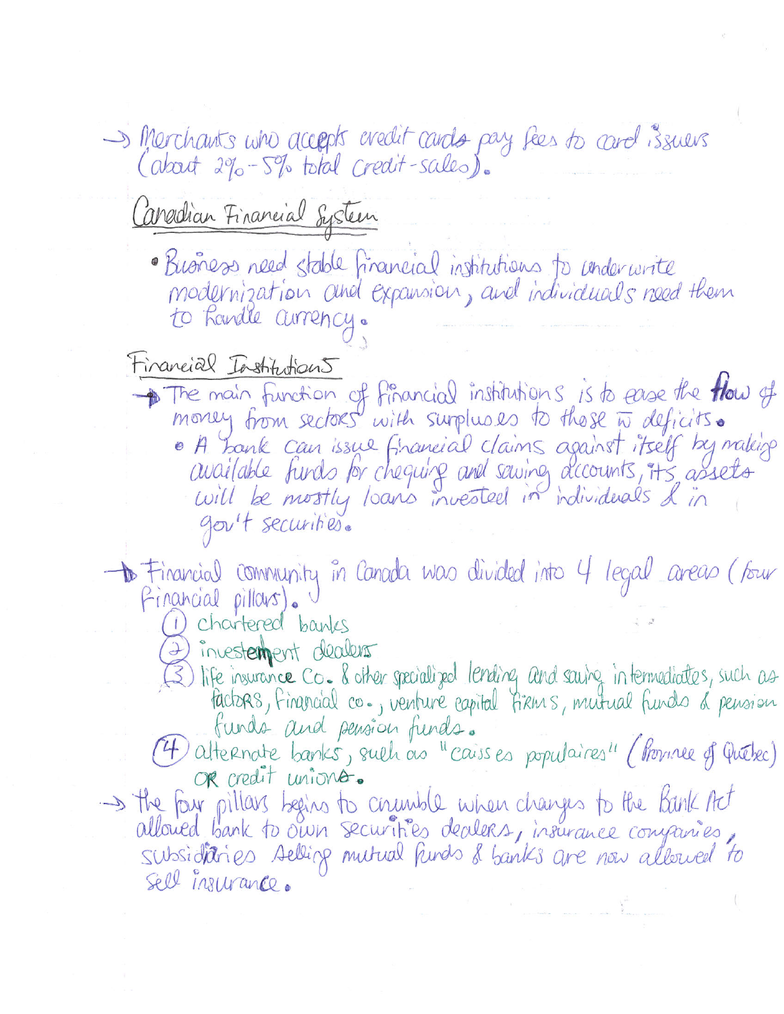 → Merchants who accepts credit cards pay fees to card issuers
(about 2%-5% total credit-sales).
Canadian Financial System
• Business need stable financial institutions to underwrite
modernization and expansion, and individuals need them
to handle currency.
Financial Institutions
→ The main function of financial institutions is to ease the flow of
money from sectors with surpluses to those w̄ deficits.
• A bank can issue financial claims against itself by making
available funds for chequing and saving accounts, its assets
will be mostly loans invested in individuals & in
gov't securities.
→ Financial community in Canada was divided into 4 legal areas (four
financial pillars).
① chartered banks
② investement dealers
③ life insurance Co. & other specialized lending and saving intermediates, such as
factors, financial co., venture capital firms, mutual funds & pension
funds and pension funds.
④ alternate banks, such as "caisses populaires" (Province of Québec)
OR credit unions.
→ the four pillars begins to crumble when changes to the Bank Act
allowed bank to own securities dealers, insurance companies,
subsidiaries selling mutual funds & banks are now allowed to
sell insurance.